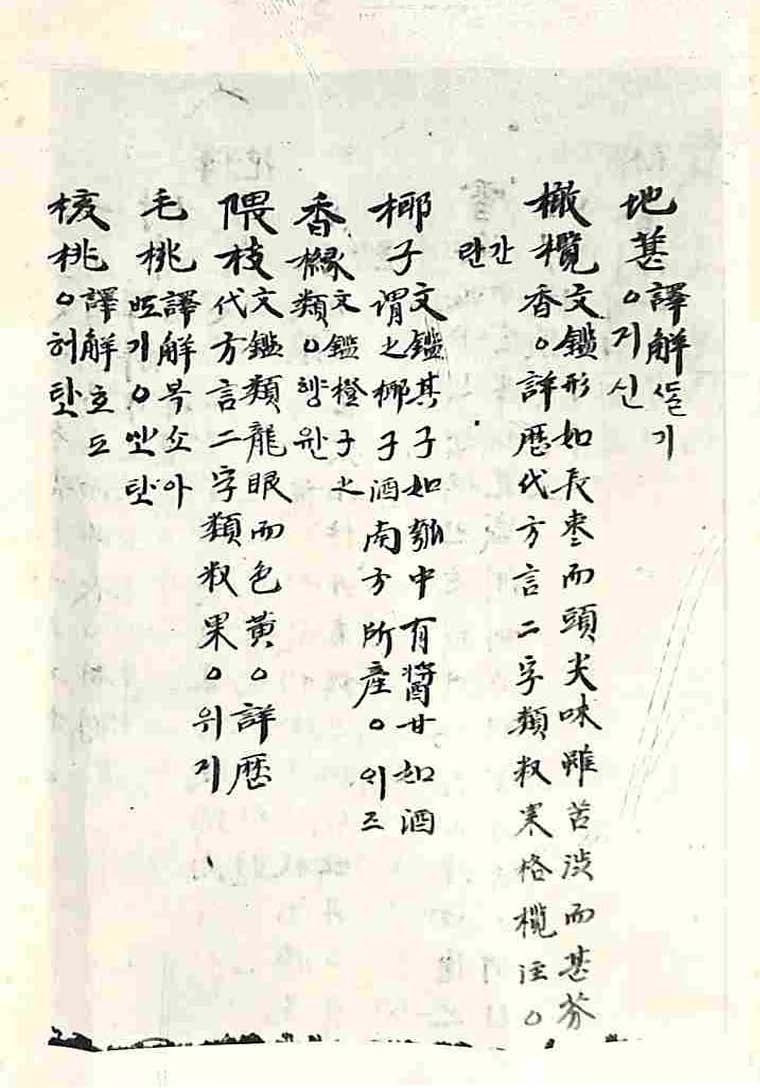 地葚
譯解ᄯᆞᆯ기
○지신
橄欖
文鑑形如長棗而頭尖味雖苦澁而甚芬
香○詳歷代方言二字類杈果格欖注○
간
란
椰子
文鑑其子如瓠中有醬甘如酒
謂之椰子酒南方所產○
香櫞
文鑑橙子之
類○향원
隈枝
文鑑類龍眼而色黃○詳歷
代方言二字類杈果○위지
毛桃
譯解복쇼아
核桃
譯解호도